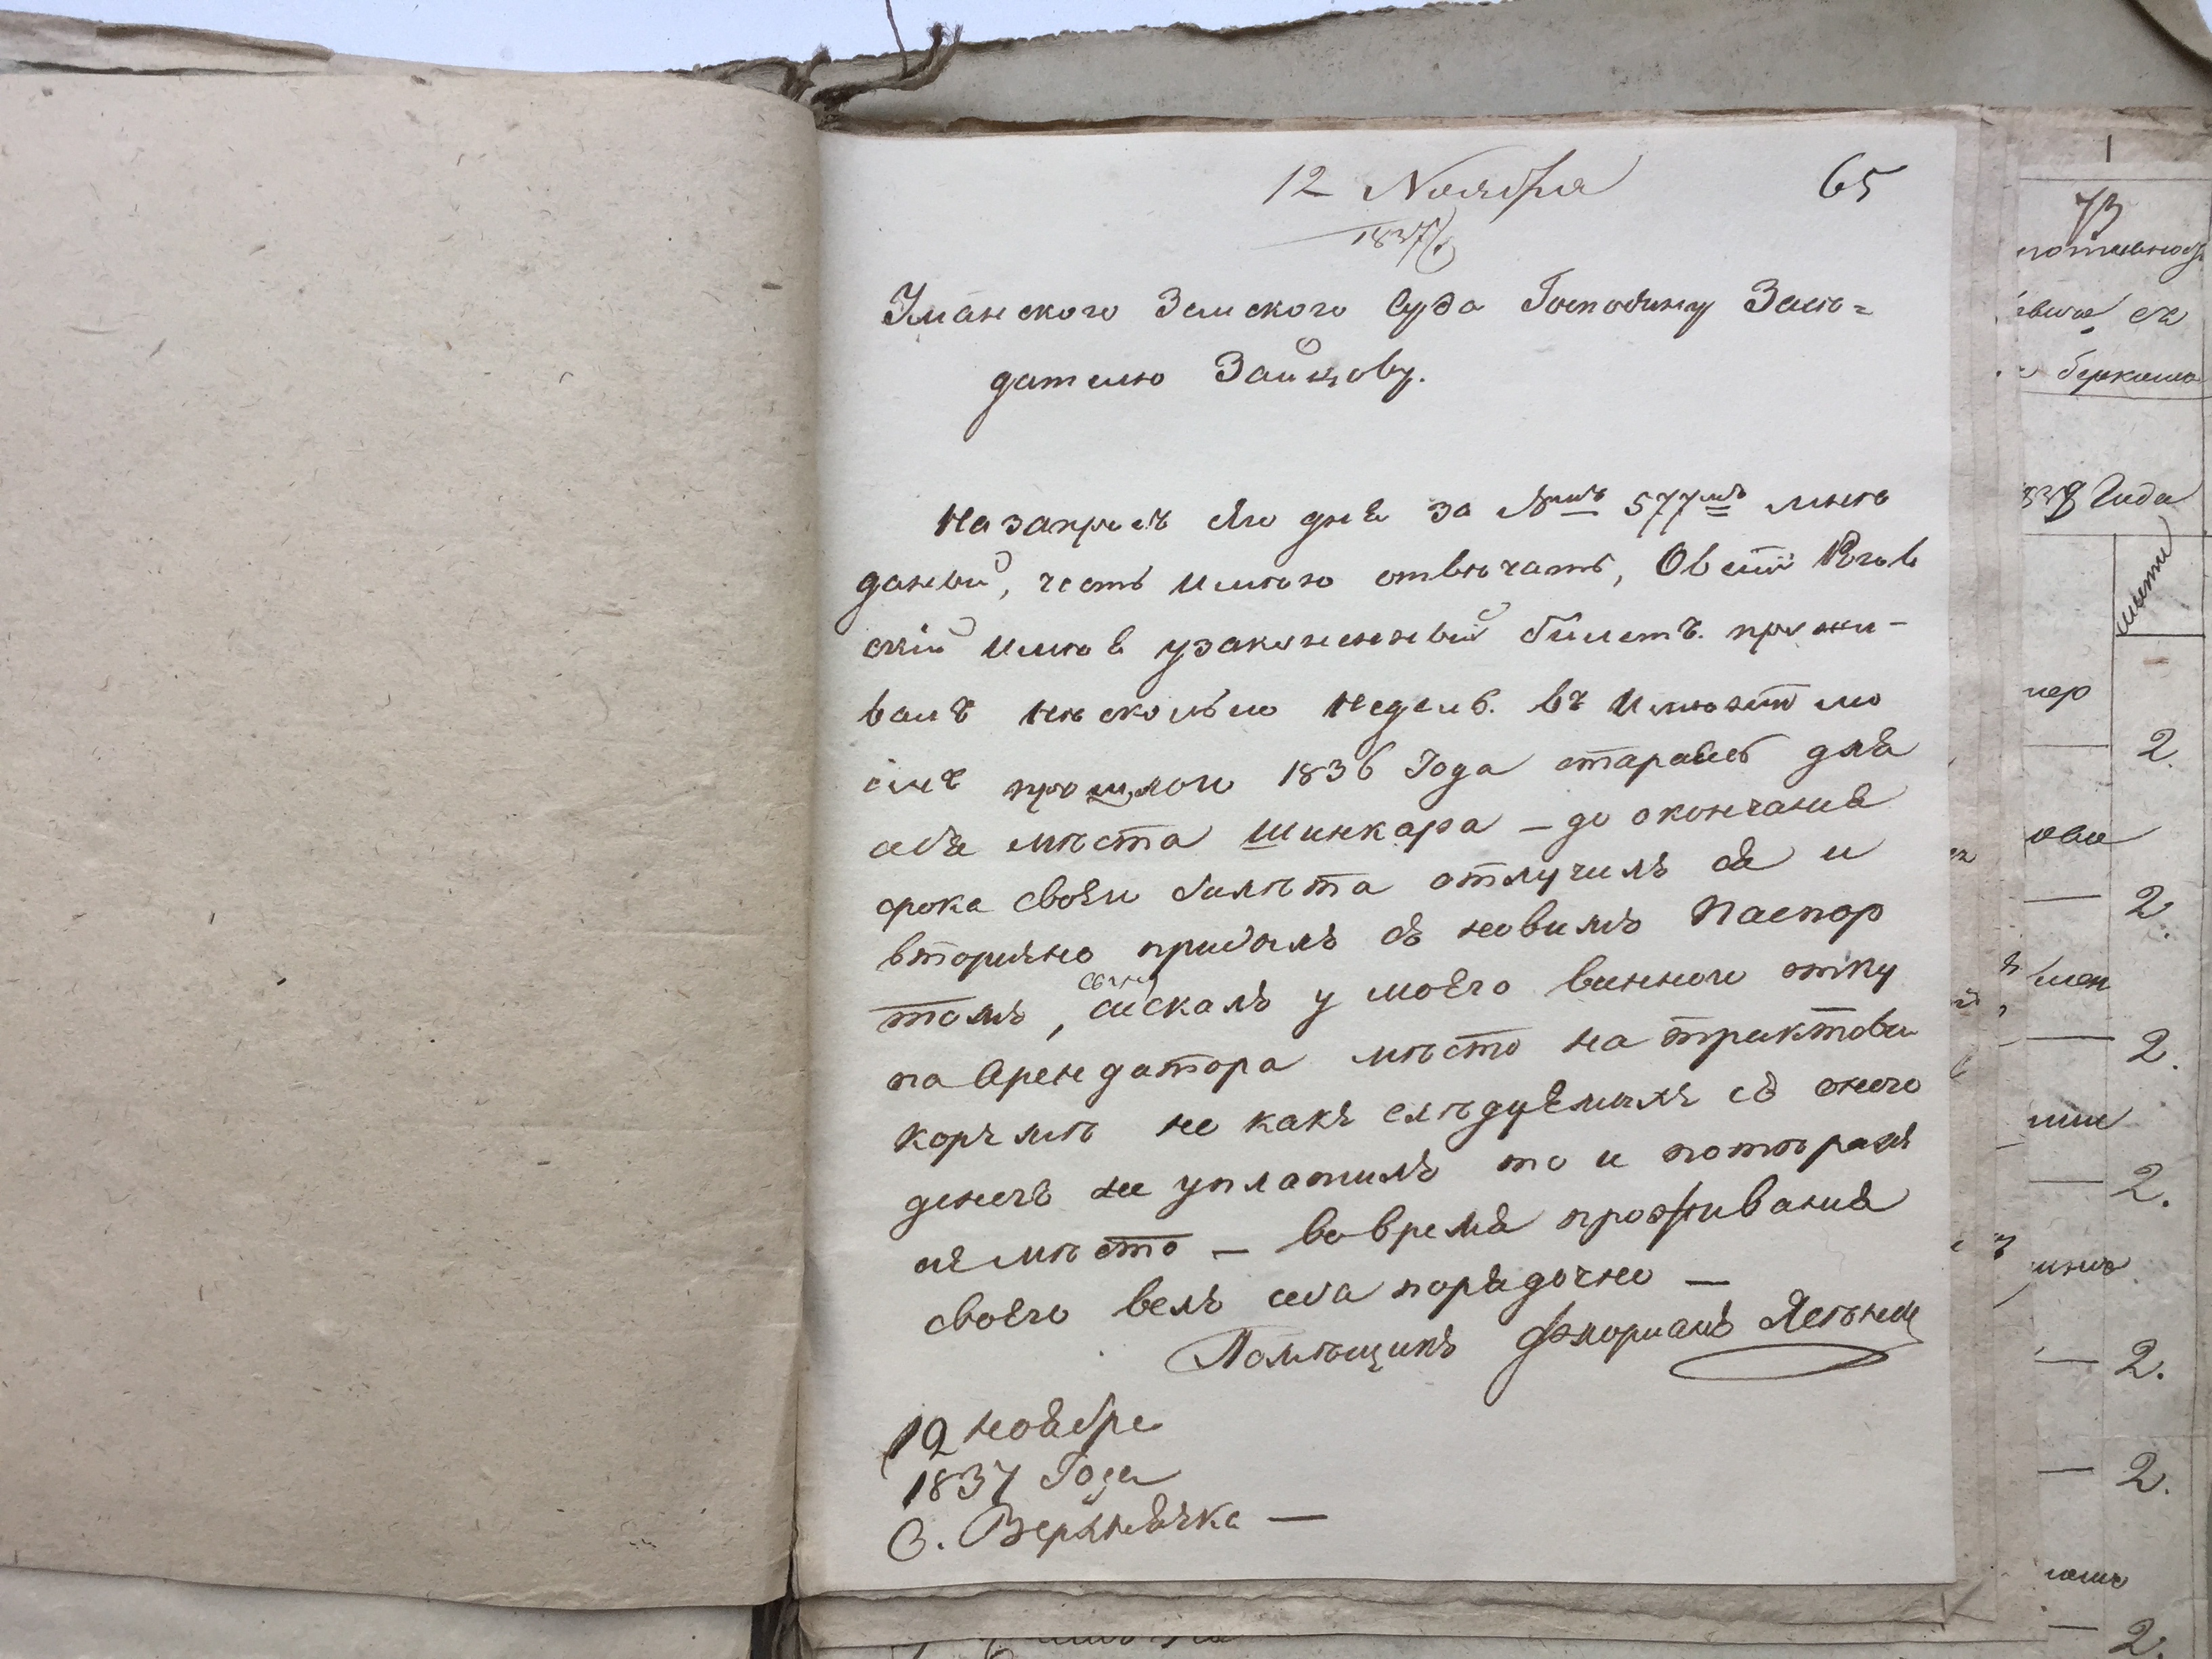 12 Ноября 65
1837 г.
Уманского Земского Суда Господину Засѣ=
дателю Зайцову.
На запросъ Его дня за №мъ 577мъ мнѣ
даный, честь имѣю отвѣчать, Овсій Рогов
скій имѣя узаконенный билетъ прожи-
валъ нѣсколько недель въ имѣніи мо
емъ прошлого 1836 Года стараясь для
себя мѣста шинкара – до окончания
срока своего билѣта отлучилъ ся и
вторично прибылъ съ новимъ Паспор
томъ, сискалъ у моего винного отку
па Арендатора мѣсто на трактовой
корчмѣ но какъ слѣдуемихъ съ оного
денегъ не уплатилъ то и потерялъ
ея мѣсто – во время проживания
своего велъ себя порядочно –
Помѣщикъ Флориань
12 ноября
1837 Года
С. Верхнячка –
73
1838 Года
2.
2.
2.
2.
2.
2.
2.